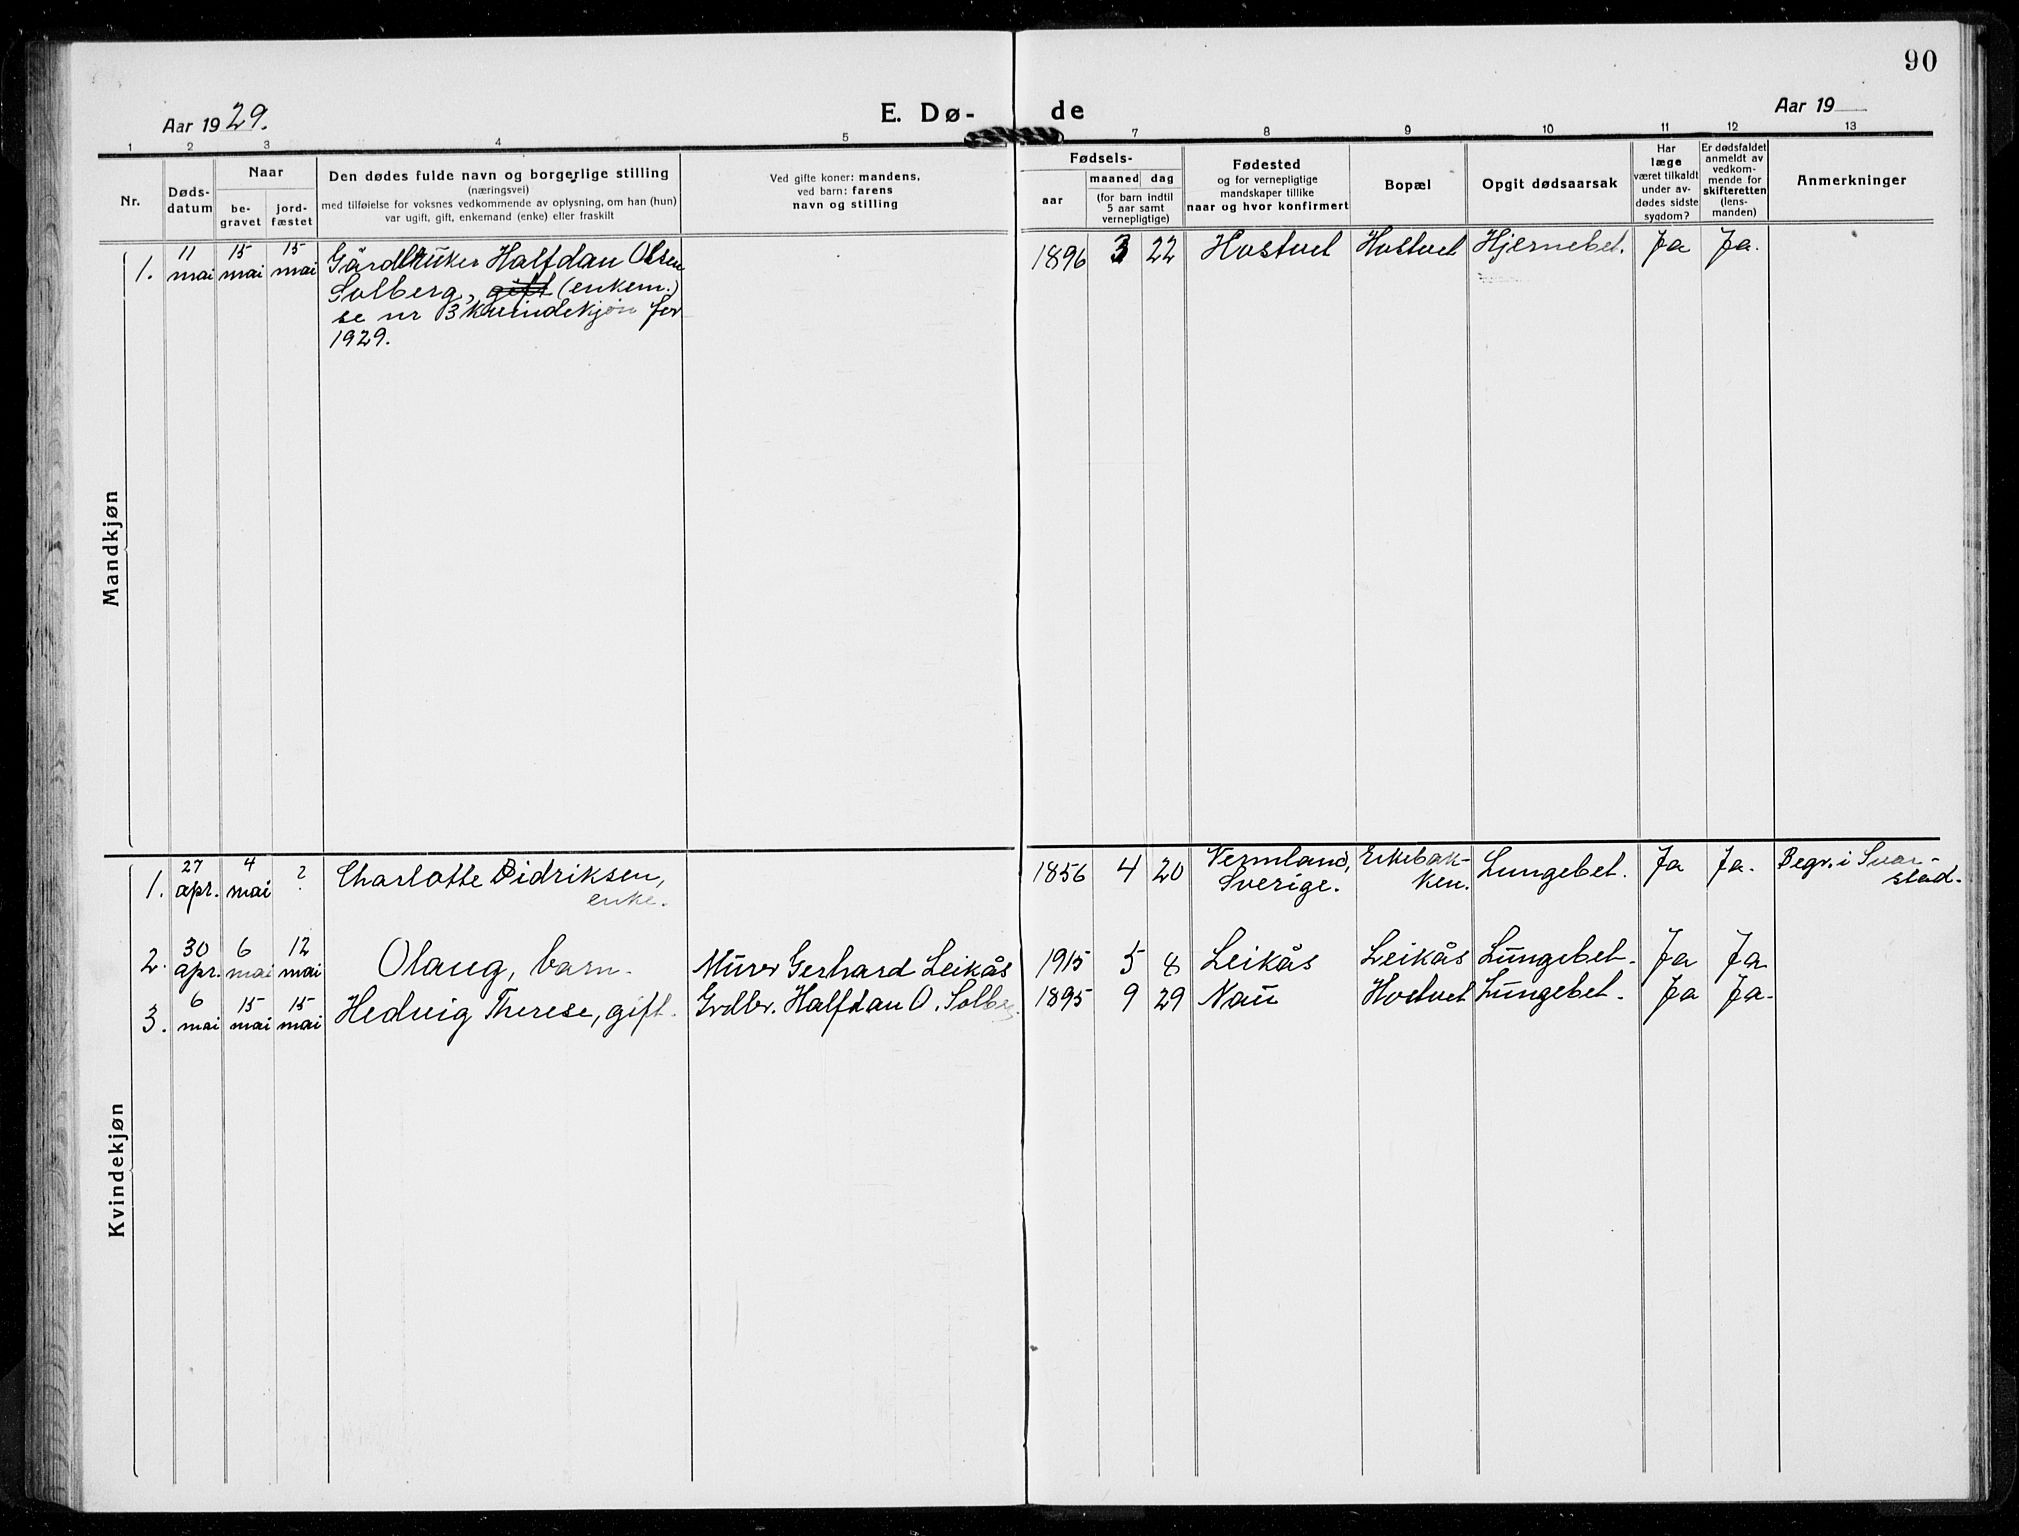 90
Aar 1929.
E. Dø- de
Aar 19
1 2 3 4 5 7 8 9 10 11 12 13
Nr.
Døds-
datum
Naar
be-
gravet
jord-
fæstet
Den dødes fulde navn og borgerlige stilling
(næringsvei)
med tilføielse for voksnes vedkommende av oplysning, om han (hun)
var ugift, gift, enkemand (enke) eller fraskilt
Ved gifte koner: mandens,
ved barn: farens
navn og stilling
Fødsels-
aar
maaned dag
(for barn indtil
5 aar samt
vernepligtige)
Fødested
og for vernepligtige
mandskaper tillike
naar og hvor konfirmert
Bopæl
Opgit dødsaarsak
Har
læge
været tilkaldt
under av-
dødes sidste
sygdom?
Er dødsfaldet
anmeldt av
vedkom-
mende for
skifteretten
(lens-
manden)
Anmerkninger
Mandkjøn
1. 11 mai 15 mai 15 mai Gårdbruker Halfdan Olsen 1896 3 22 Hostvet Hostvet Hjernebet. Ja Ja.
Solberg, gift (enkem.)
se nr 3 kvindekjøn for
1929.
Kvindekjøn
1. 27 apr. 4 mai ? Charlotte Didriksen, 1856 4 20 Vermland, Eikebak- Lungebet. Ja Ja. Begr. i Svar-
enke. Sverige. ken. stad.
2. 30 apr. 6 mai 12 mai Olaug, barn. Murer Gerhard Leikås 1915 5 8 Leikås Leikås Lungebet. Ja Ja
3. 6 mai 15 mai 15 mai Hedvig Therese, gift. Grdbr. Halfdan O. Solberg. 1895 9 29 Nau Hostvet Lungebet. Ja Ja.